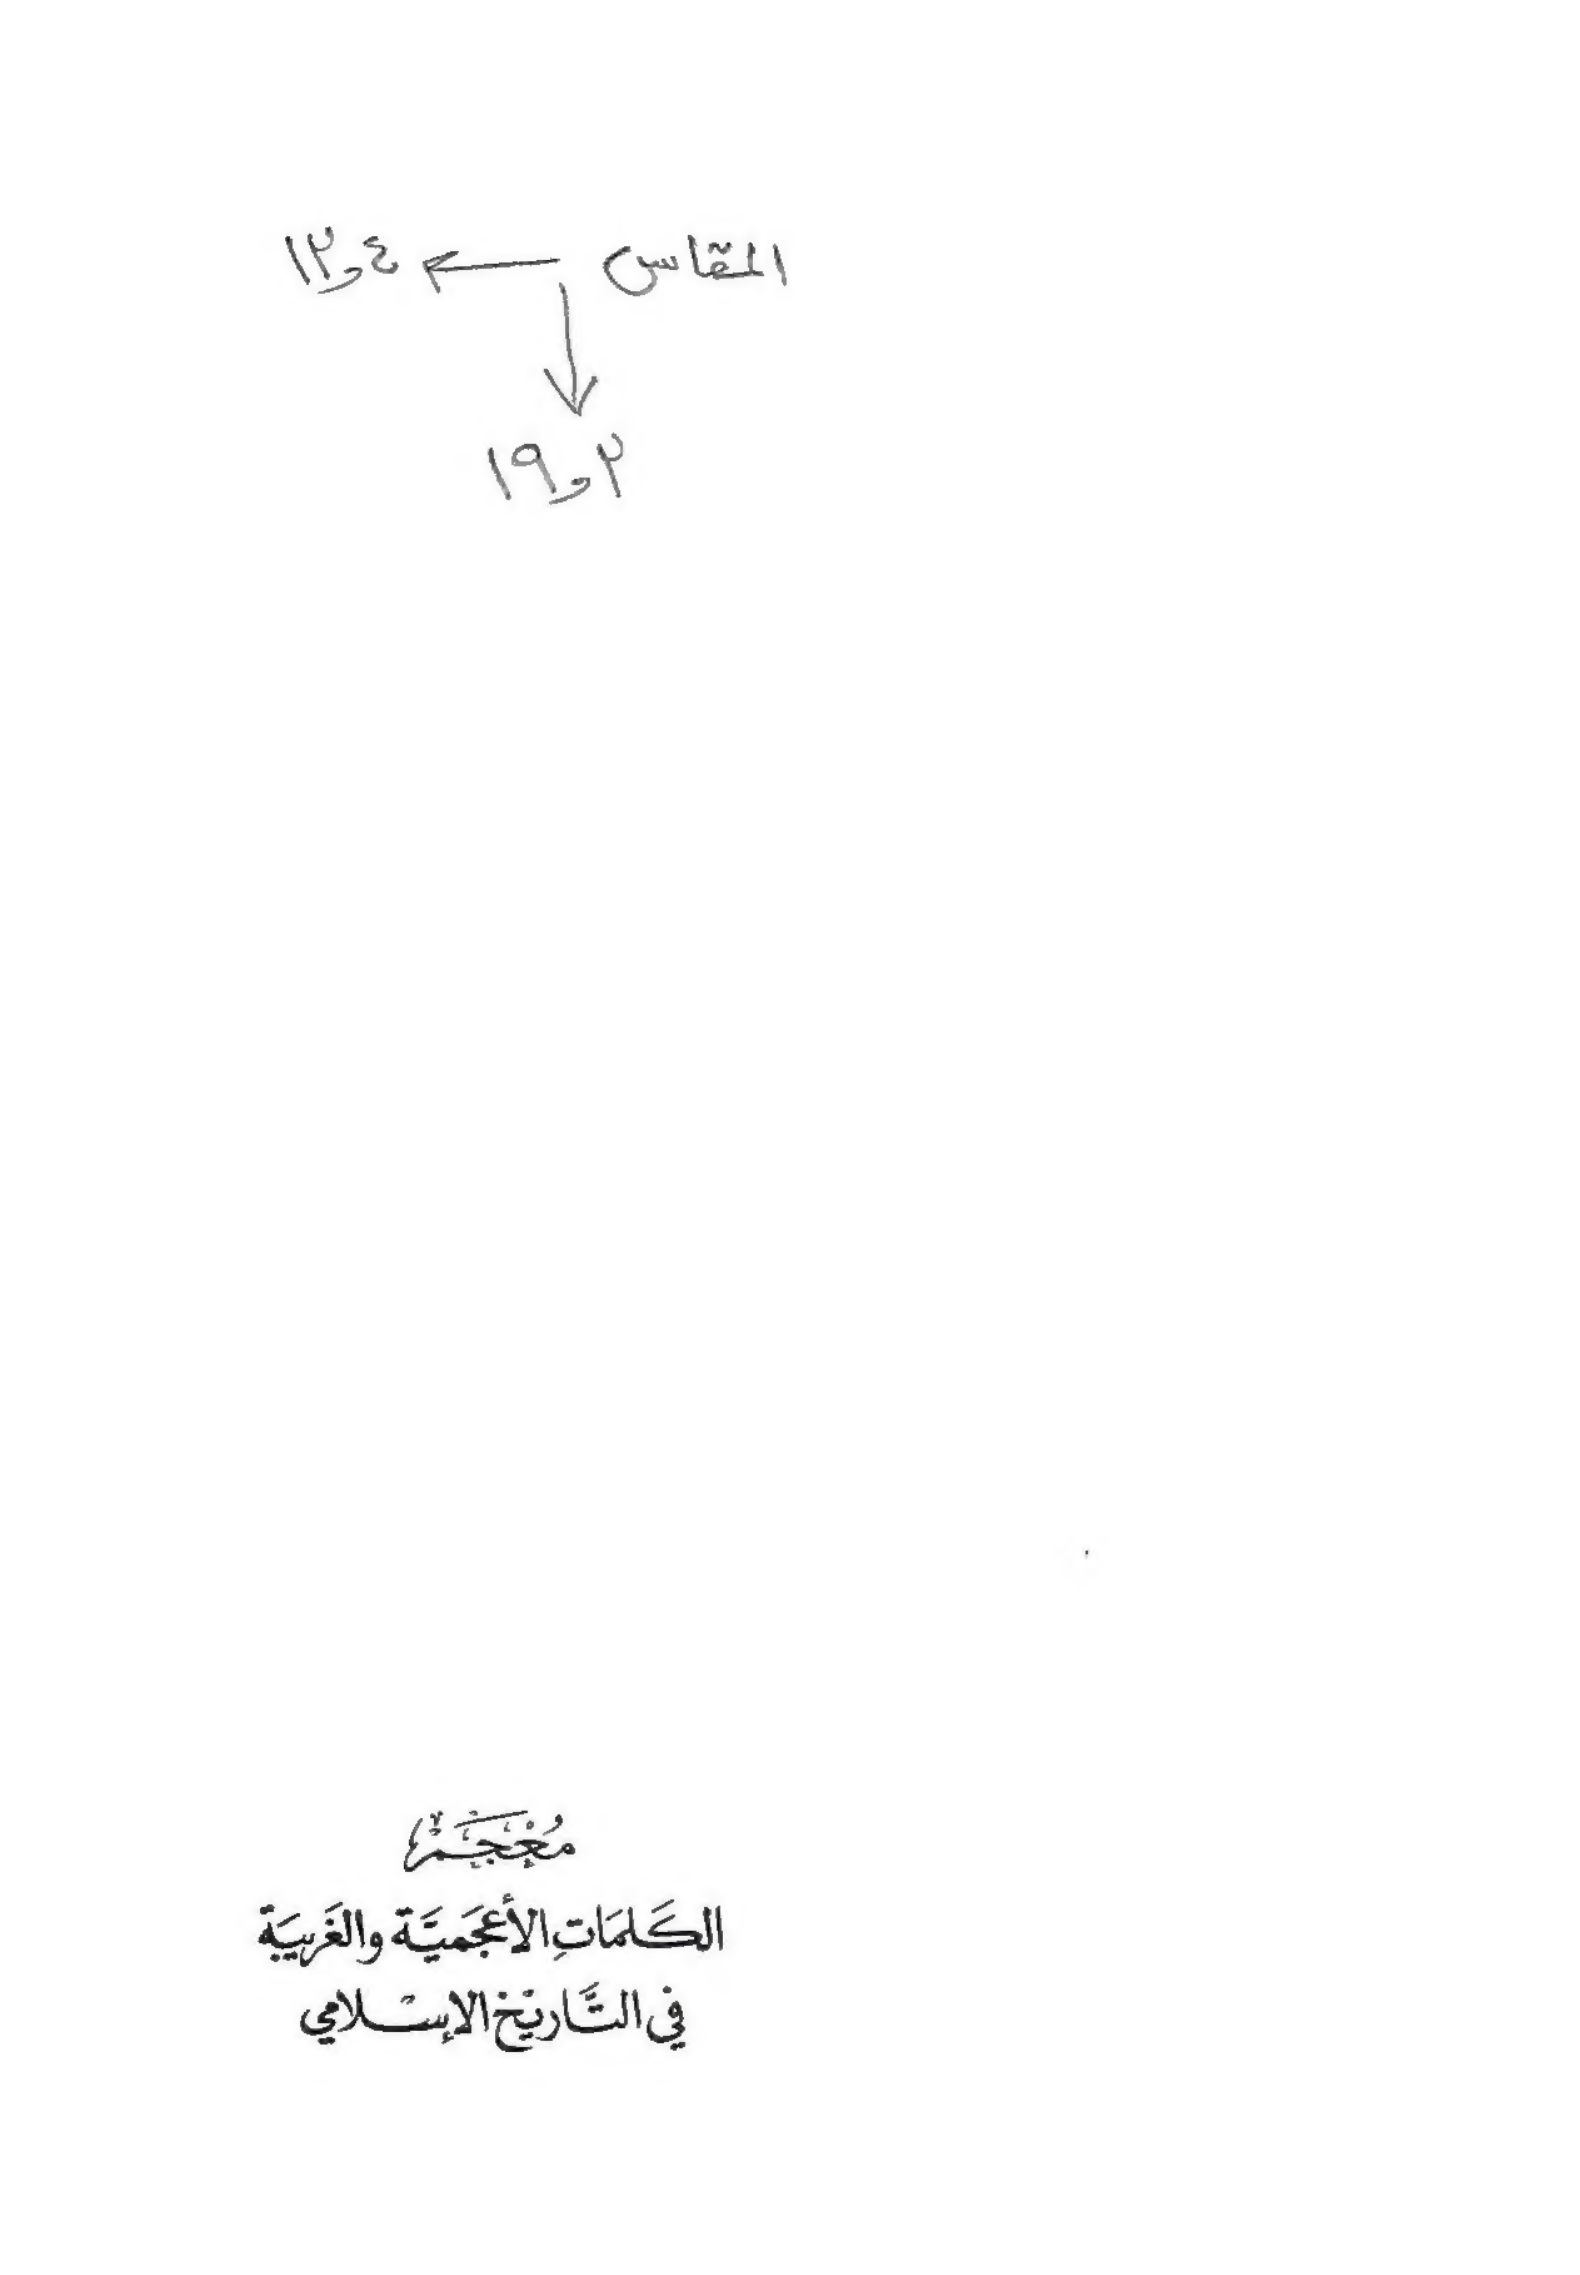 المقاس ← ١٢,٤
↓
١٩,٢
مُعْجَمُ
الكَلمَاتِ الأعجَميَّة والغَريبَة
في التَّاريْخ الإسْلامي